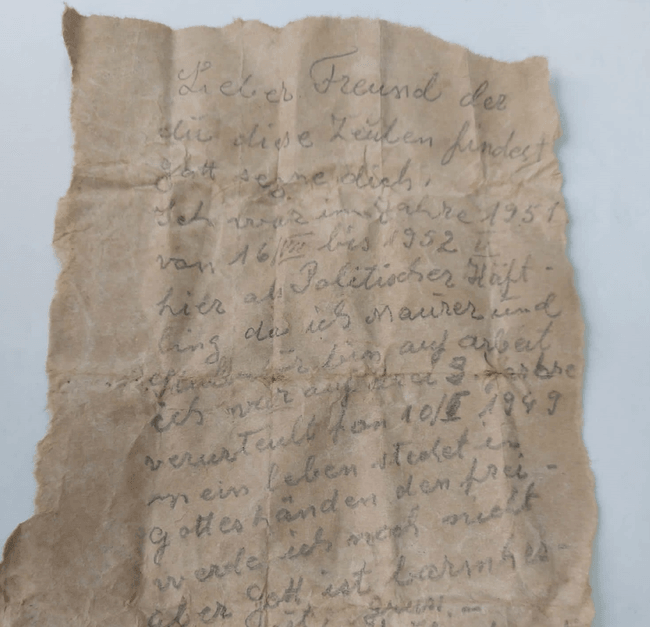 Lieber Freund der
du diese Zeilen findest
Gott segne dich.
Ich war im Jahre 1951
von 16/VIII bis 1952 II
hier als Politischer Häft-
ling da ich Maurer und
bin auf arbeit
ich war auf drei 3 Jahre
verurteult fon 10/I 1949
mein leben stehet in
gottes händen den frei-
werde ich noch nicht
aber gott ist barmhes-